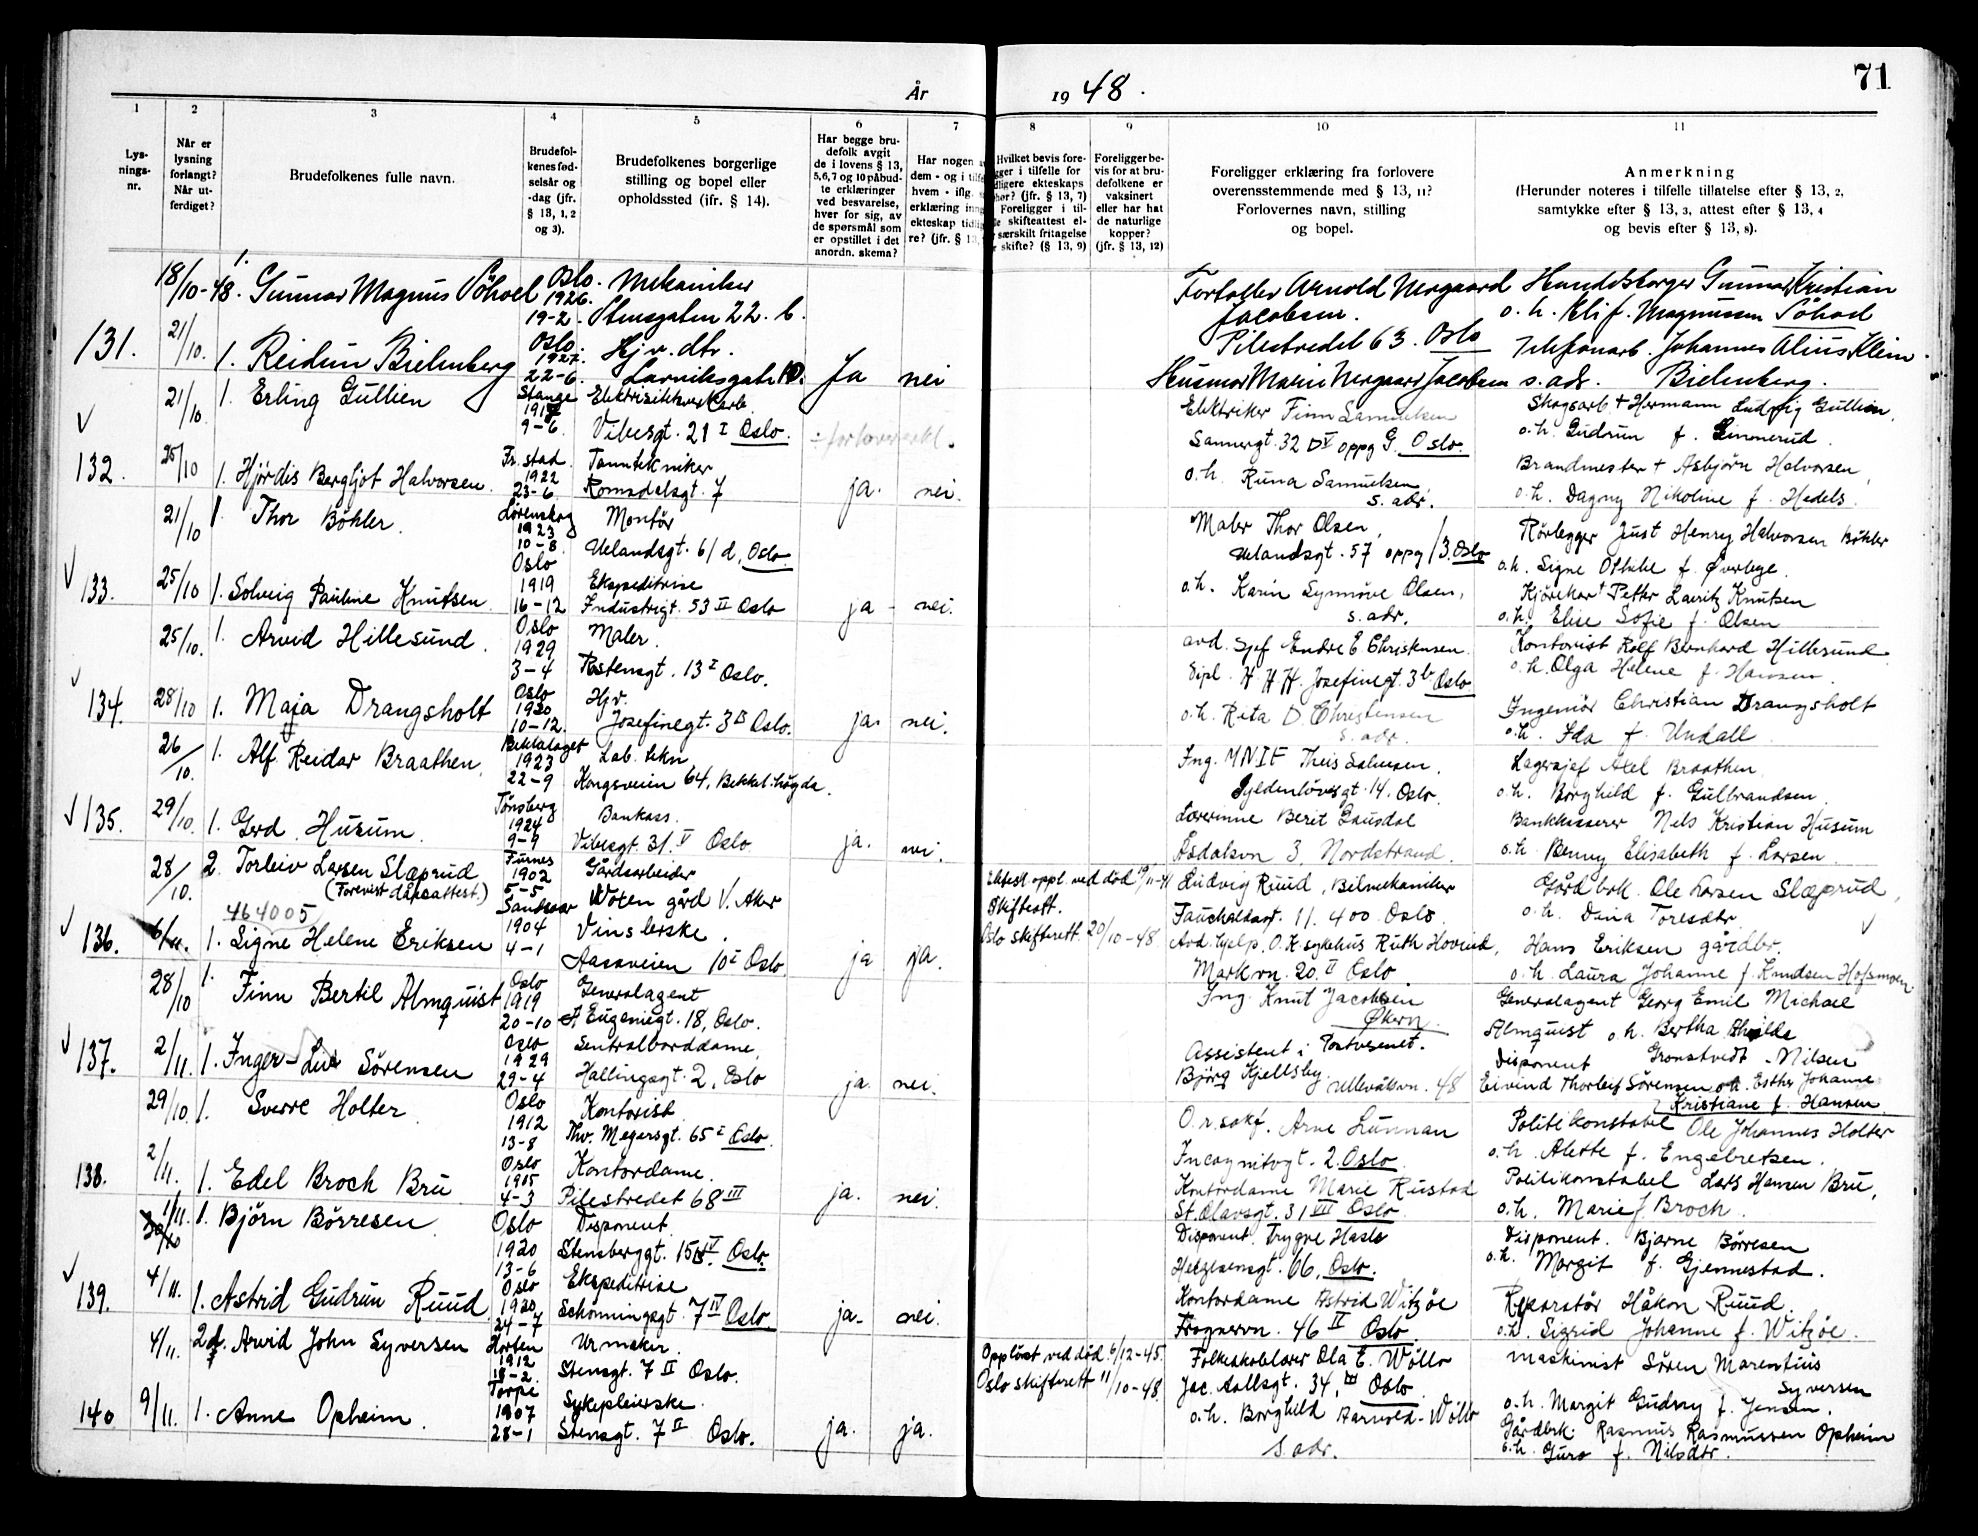 71
År
1948.
1
2
3
4
5
6
7
8
9
10
11
Lys-
nings-
nr.
Når er
lysning
forlangt?
Når ut-
ferdiget?
Brudefolkenes fulle navn.
Brudefol-
kenes fød-
selsår og
-dag (jfr.
§ 13, 1, 2
og 3).
Brudefolkenes borgerlige
stilling og bopel eller
opholdssted (ifr. § 14).
Har begge bru-
defolk avgit
de i lovens § 13,
5,6,7 og 10 påbud-
te erklæringer
ved besvarelse,
hver for sig, av
de spørsmål som
er opstillet i det
anordn. skema?
Har nogen
dem - og i
hvem - iflg.
erklæring
ekteskap
re? (jfr. § 13,
Hvilket bevis fore-
ligger i tilfelle for
ekteskaps
(jfr. § 13, 7)
Foreligger i til-
skifteattest el-
særskilt fritagelse
skifte? (§ 13, 9)
Foreligger be-
vis for at bru-
defolkene er
vaksinert
eller har hat
de naturlige
kopper?
(jfr. § 13, 12)
Foreligger erklæring fra forlovere
overensstemmende med § 13, 11?
Forlovernes navn, stilling
og bopel.
Anmerkning
(Herunder noteres i tilfelle tillatelse efter § 13, 2,
samtykke efter § 13, 3, attest efter § 13, 4
og bevis efter § 13, 8).
18/10-48. 1. Gunnar Magnus Söhoel Oslo. 1926. 19-2. Mekaniker
Stensgaten 22. b.
Forfatter Arnold Norgaard
Jacobsen.
Pilestredet 63. Oslo
Gunnar Kristian
o. h. f. Magnussen Söhoel
131. 21/10. 1. Reidun Bielenberg Oslo. 1927. 22-6. Hj. v. dtr.
Larviksgate 10. Ja nei
Husmor Marie Norgaard Jacobsen s. adr.
Telefonarb. Johannes Alius Klein
Bielenberg.
21/10. 1. Erling Gullien Stange 9-6. Elektrisitetsverkarb.
Vibesgt. 21 I Oslo. ÷ forlovererkl.
Elektriker Finn Samuelsen
Sannergt. 32 D V oppg G. Oslo.
Skogsarb. + Hermann Ludvig Gullien,
o. h. Gudrun f. Simmerud.
132. 25/10 1. Hjördis Bergljot Halvorsen. Fr. stad 1922 23-6. Tanntekniker
Romsdalsgt. 7 ja. nei.
o. h. Runa Samuelsen,
s. adr.
Brandmester + Asbjörn Halvorsen,
o. h. Dagny Nikoline f. Hedels.
21/10 1. Thor Böhler. Lörenskog 1923 10-8. Montör
Uelandsgt. 61 d, Oslo.
Maler Thor Olsen,
Uelandsgt. 57 oppg 13. Oslo
Rörlegger Just Henry Halvorsen Böhler
o. h. Signe f. Överbye.
133. 25/10 1. Solveig Pauline Knutsen. Oslo 1919 16-12 Ekspeditrise
Industrigt. 53 II Oslo ja - nei.
o. h. Karin Synnöve Olsen,
s. adr.
Kjörekar + Petter Lauritz Knutsen
o. h. Elise Sofie f. Olsen
25/10. 1. Arvid Hillesund. Oslo 1929 3-4 Maler.
13 I Oslo.
avd. sjef Endre E. Christensen.
Dipl. H H H. Josefinegt. 3 b Oslo
Kontorist Rolf Bernhard Hillesund
o. h. Olga Helene f. Hansen.
134. 28/10 1. Maja Drangsholt Oslo 1920 10-12. Hjv.
Josefinegt. 3 B Oslo. ja. nei.
o. h. Rita D. Christensen
s. adr.
Ingeniör Christian Drangsholt
o. h. Ida f. Undall
26/10. 1. Alf Reidar Braathen. Bekkelaget 1923 22-9 Lab. tekn.
Kongsveien 64, Bekkel.högda.
Ing. MNIF Theis Salvesen.
Gyldenlövesgt. 14. Oslo.
Lagersjef Axel Braathen
o. h. Borghild f. Gulbrandsen.
135. 29/10. 1. Gerd Husum. Tönsberg 1924 9-9 Bankass.
Vibesgt. 31. V Oslo ja. nei.
Lærerinne Berit Gausdal
Åsdalsvn 3, Nordstrand.
Bankkasserer Nels Kristian Husum
o. h. Benny Elisabeth f. Larsen.
28/10. 2. Torleiv Larsen Slæprud
(Forevist dåpsattest.) Furnes 1902 5-5 Gårdsarbeider
Voten gård V. Aker
Ektesk. oppl. ved död 19/11-41
Skifteatt.
Oslo skifterett. 20/10-48
Ludvig Ruud, Bilmekaniker
Fauchaldsgt. 11. 400. Oslo.
Gårdbrk. Ole Larsen Slæprud,
o. h. Dina Toresdtr.
464005
136. 6/11. 1. Signe Helene Eriksen Sandsvær 1904 4-1 Vinsterske.
Aassveien 10 I Oslo. ja ja.
Avd. hjelp. O. K. sykehus Ruth Hovind,
Markvn. 20. II Oslo
Hans Eriksen gårdbr.
o. h. Laura Johanne f. Knudsen Hofsmoen.
28/10 1. Finn Bertil Almquist Oslo 1919 20-10 Generalagent
Eugeniegt. 18, Oslo.
Ing. Knut Jacobsen
Økern
Generalagent Georg Emil Michael
Almquist o. h. Bertha
Gronstvedt-Nilsen
137. 2/11. 1. Inger-Liv Sörensen Oslo 1929 29-4 Sentralborddame,
Hallingsgt. 2. Oslo ja. nei.
Assistent i Postvesenet.
Björg Kjellsby, Ullevålsvn. 48
Disponent
Eivind Thorleif Sörensen o. h. Esther Johanne
Kristiane f. Hansen.
29/10 1. Sverre Holter. Oslo 1912 13-8 Kontorist
Thv. Meyersgt. 65 I Oslo.
O. r. sakf. Arne Lunnan
Incognitogt. 2. Oslo.
Politikonstabel Ole Johannes Holter
o. h. Alette f. Engebretsen.
138. 2/11. 1. Edel Broch Bru Oslo 1905 4-3 Kontordame.
Pilestredet 68 III ja. nei.
Kontordame Marie Rustad
St. Olavsgt. 31 VII Oslo.
Politikonstabel Lars Hansen Bru,
o. h. Marie f. Broch.
1/11. 30/10 1. Björn Börresen. Oslo 1920 13-6 Disponent
Stensberggt. 15 IV. Oslo.
Disponent. Trygve Hasle
Helgesensgt. 66, Oslo.
Disponent. Bjarne Börresen
o. h. Margit f. Gjennestad.
139. 4/11. 1. Astrid Gudrun Ruud. Oslo 1920 24-7 Ekspeditrise
Schönningsgt. 7 IV Oslo. ja- nei.
Kontordame Astrid Witzöe
Frognervn. 46 II Oslo.
Reparatör Håkon Ruud.
o. h. Sigrid Johanne f. Witzöe.
4/11. 2. Arvid John Syversen Horten 1912 18-2. Urmaker.
Stensgt. 7 II Oslo.
Opplöst ved död. 6/12-45.
Oslo skifterett 11/10-48.
Folkeskolelærer Ola E. Wöllo
Jac. Aallsgt. 34, III Oslo.
Maskinist Sören Marentius
Syversen
o. h. Margit Gudrny f. Jensen.
140 9/11. 1. Anne Opheim. Torpe 1907 28-1 Sykepleierske.
Stensgt. 7 II Oslo. ja. ja.
o. h. Borghild Aarvold-Wöllo
s. adr.
Gårdbrk. Rasmus Rasmussen Opheim
o. h. Guro f. Nilsdtr.